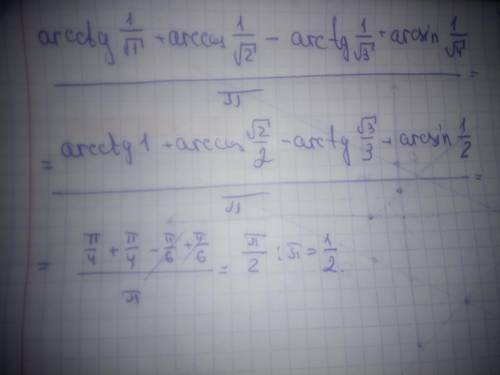 arcctg 1/√1 + arccos 1/√2 − arctg 1/√3 + arcsin 1/√4
π =
= arcctg 1 + arccos √2/2 − arctg √3/3 + arcsin 1/2
π =
= π/4 + π/4 − π/6 + π/6
π = π/2 : π = 1/2.